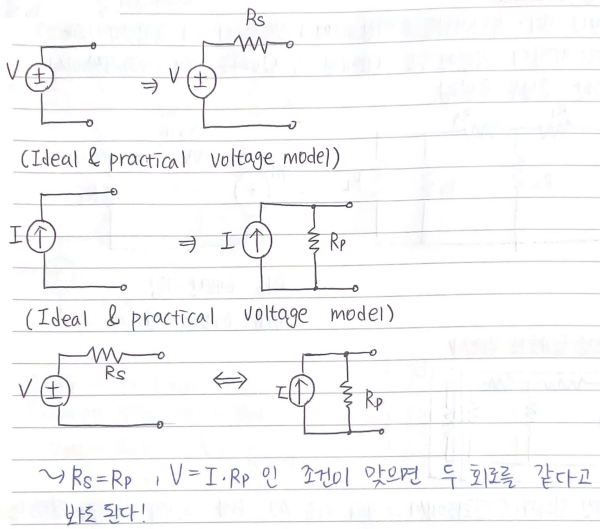 Rs
V ± ⇒ V ±
(Ideal & practical voltage model)
I ↑ ⇒ I ↑ Rp
(Ideal & practical voltage model)
V ± Rs ⇔ I ↑ Rp
↝ Rs=Rp , V=I·Rp 인 조건이 맞으면 두 회로를 같다고
봐도 된다!